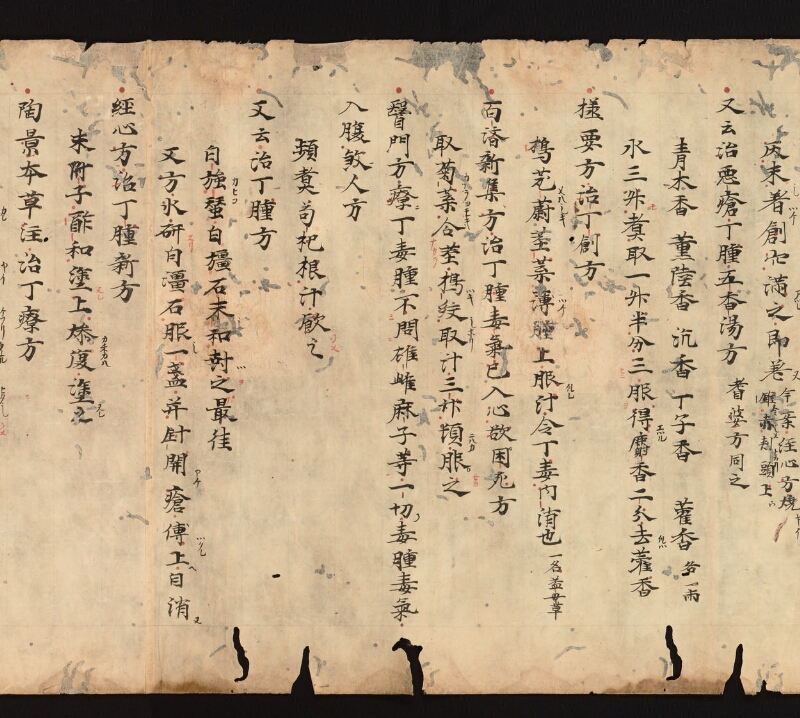 灰末着創口満之即差 又今案経心方焼雄赤頭上
又云治悪瘡丁腫五香湯方 耆婆方同之
青木香 薫陸香 沉香 丁子香 藿香 各一兩
水三升煮取一升半分三服得麝香二分去藿香
様要方治丁創方
搗茺蔚莖葉薄腫上服汁令丁毒内消也 一名益母草
百済新集方治丁腫毒氣已入心欲困死方
取菊葉合莖搗絞取汁三升頓服之
醫門方療丁毒腫不問雄雌麻子等一切毒腫毒氣
入腹煞人方
頻煮苟杞根汁飲之
又云治丁腫方
白殭蚕白殭石末和封之最佳
又方水研白殭石服一盞并針開瘡傅上自消
経心方治丁腫新方
末附子酢和塗上燥復塗之
陶景本草注治丁療方